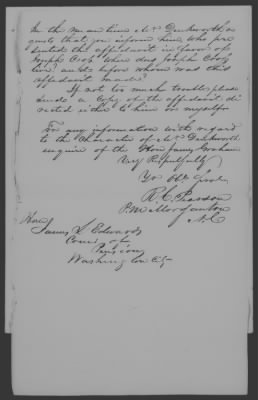 In the mean time Mr Duckworth re
quests that you inform him, who pre
sented the affidavit in favor of
Joseph Cook, where does Joseph Cook
live. and before whom was this
affidavit made?
If not too much trouble, please
send a copy of the affidavit di
rected either to him or myself.
For any information with regard
to the Character of Mr Duckworth
enquire of the Hon James Graham
Very Respectfully
Yr Obt Servt
R. C. Pearson
P.M. Morganton
N.C
Hon
James L Edwards
Com of
Pensions
Washington City